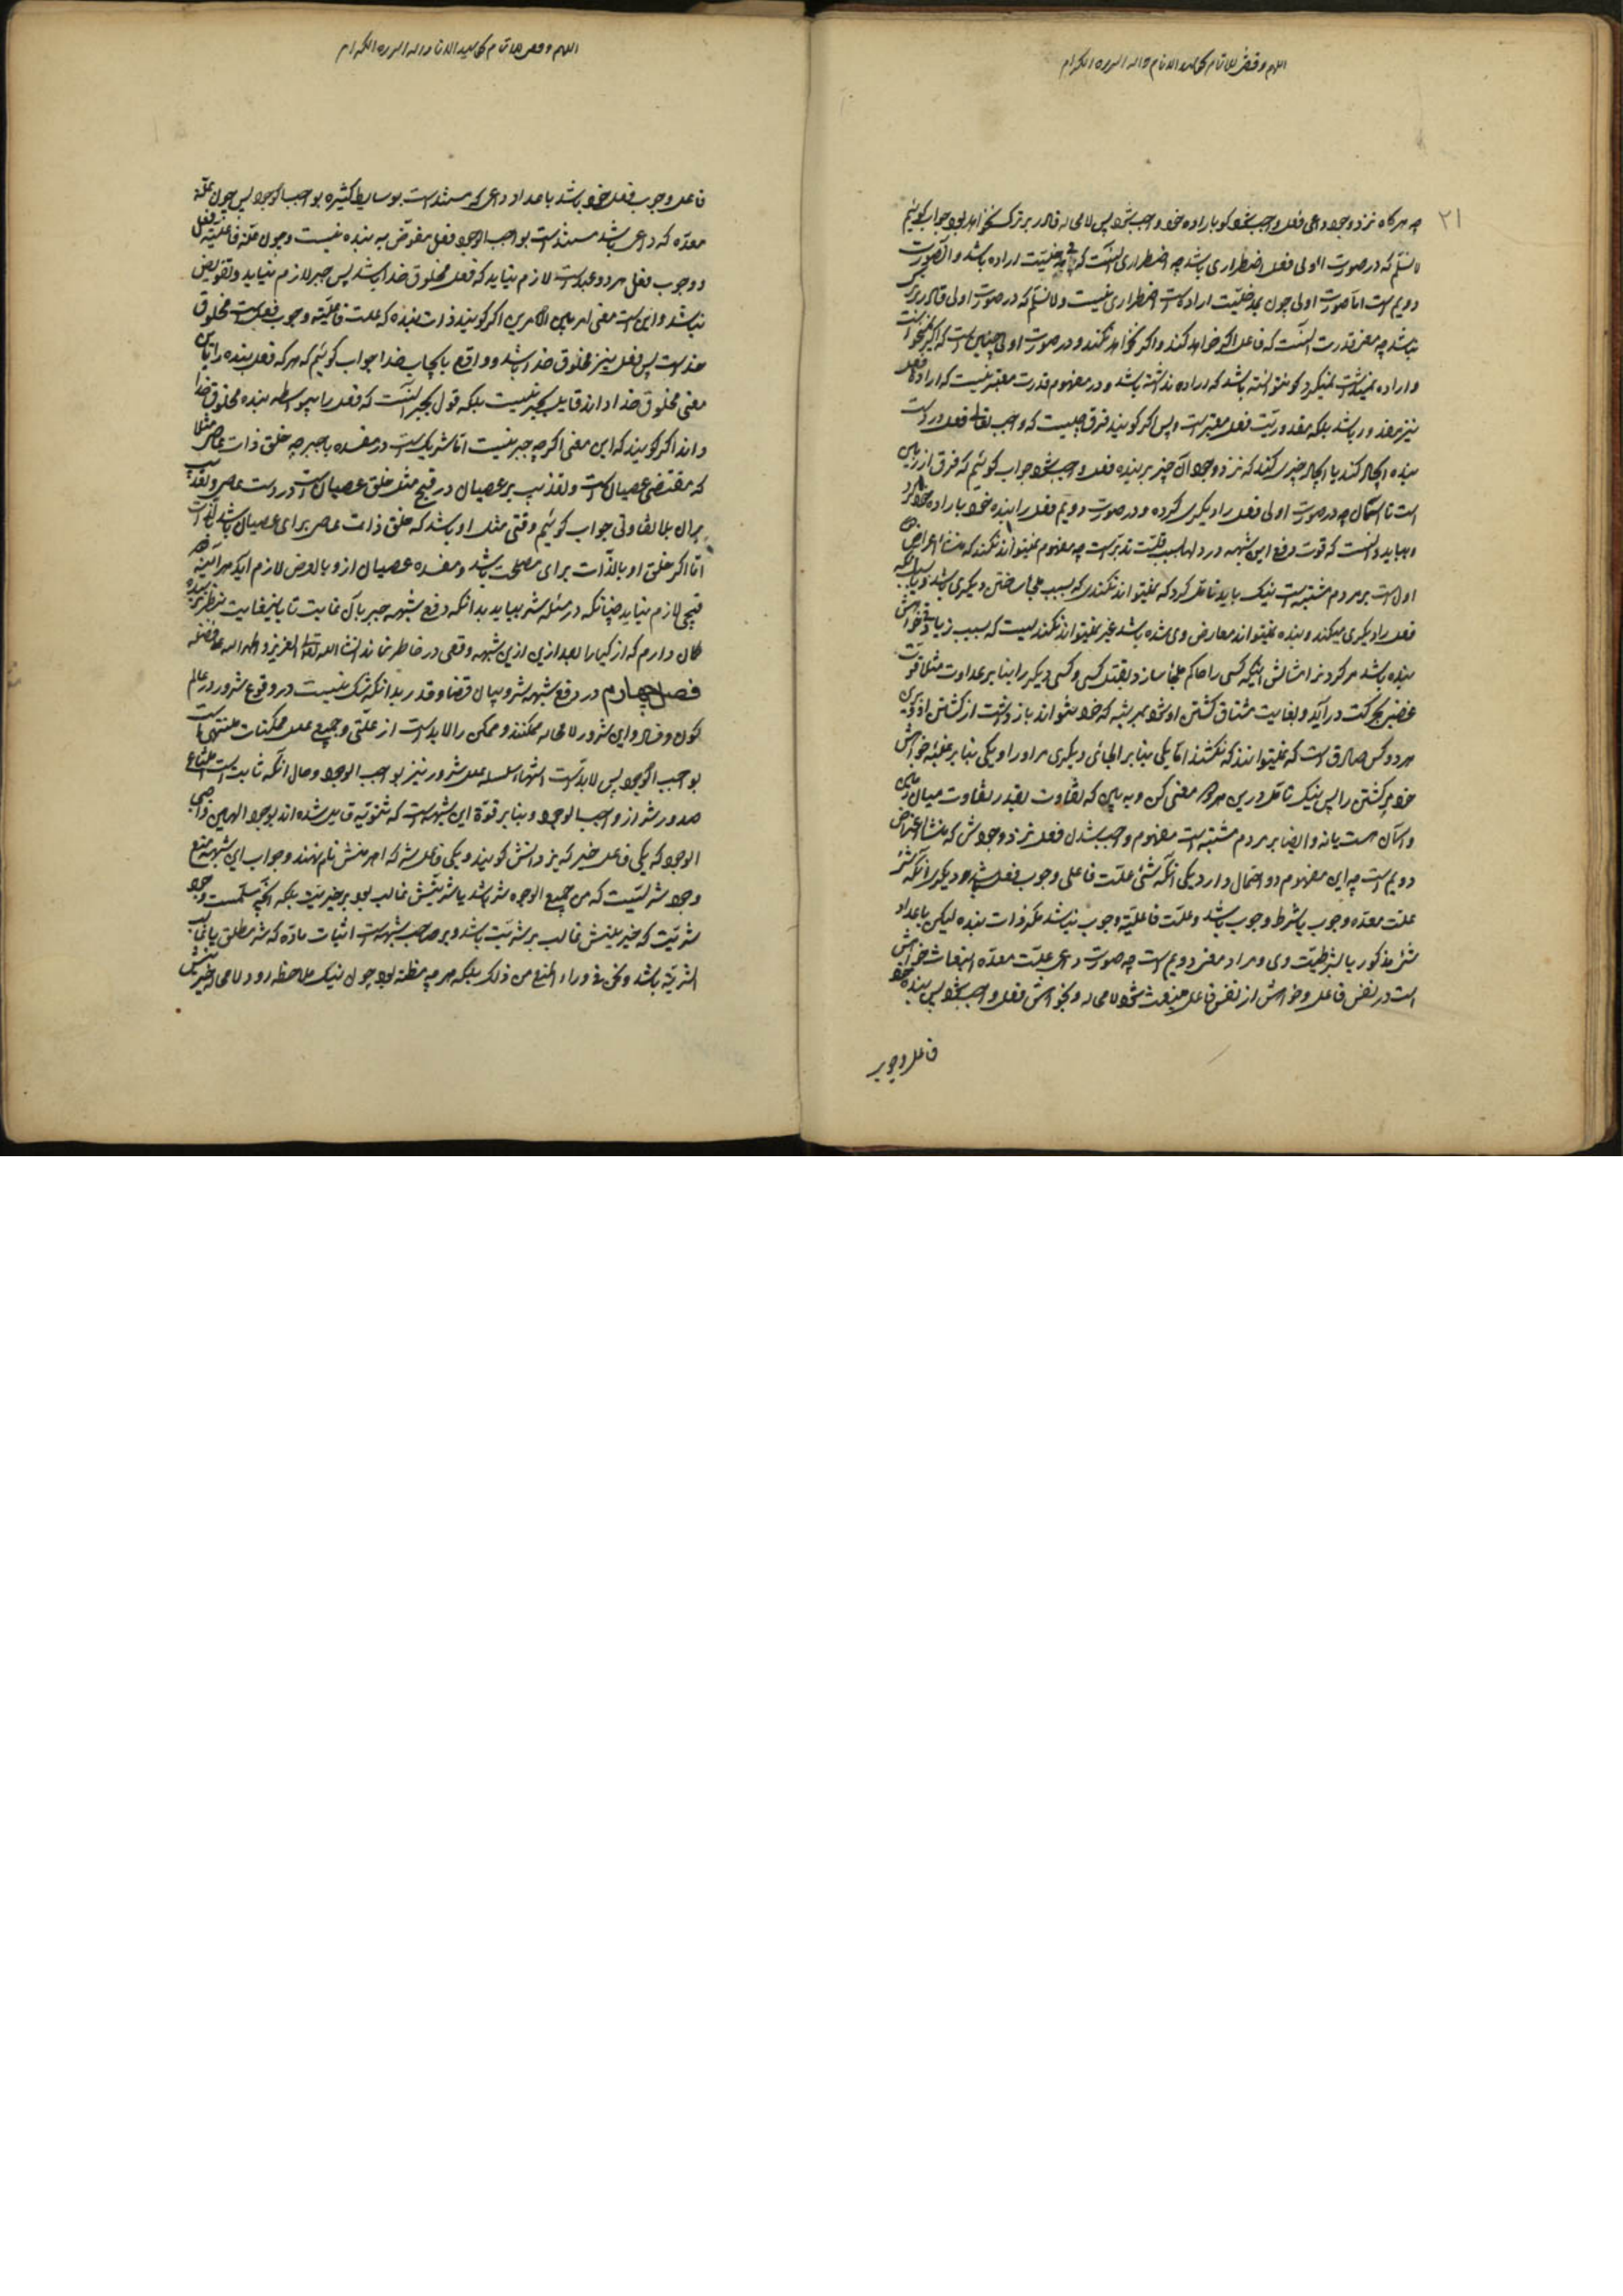 ۲۱
چه هرگاه نزد وجود داعی فعل واجب شود کو باراده خود واجب شود پس لامحاله قادر بر ترک نخواهد بود جواب گوئیم
لا نسلم که در صورت اولی فعل اضطراری باشد چه اضطراری آنست که بی مدخلیت اراده باشد و آن صورت
دویم است اما صورت اولی چون بمدخلیت اراده است اضطراری نیست و لا نسلم که در صورت اولی قادر بر ترک
نباشد چه معنی قدرت آنست که فاعل اگر خواهد کند و اگر نخواهد نکند و در صورت اولی چنین است که اگر نمیخواست
و اراده نمیداشت نمیکرد کو نتوانسته باشد که اراده نداشته باشد و در مفهوم قدرت معتبر نیست که اراده فعل
نیز مقدور باشد بلکه مقدوریت فعل معتبر است و بس اگر گویند فرق چیست که واجب تعالی فعل در دست
بنده ایجاد کند یا ایجاد چیزی کند که نزد وجود آن چیز بر بنده فعل واجب شود جواب گوئیم که فرق از زمین
است تا آسمان چه در صورت اولی فعل را دیگری کرده و در صورت دویم فعل را بنده خود باراده خود کرد
و بباید دانست که قوت دفع این شبهه در دلها بسبب قلت تدبر است چه مفهوم نمیتواند نکند که منشاء اعراض
اول است بر مردم مشتبه است نیک باید تامل کرد که نمیتواند نکندی که بسبب ملجا ساختن دیگری باشد و یا بسبب آنکه
فعل را دیگری میکند و بنده نمیتواند معارض وی شده باشد غیر نمیتواند نکندیست که بسبب زیادتی خواهش
بنده باشد مر کردنرا مثالش اینکه کسی را حاکم ملجا سازد بقتل کسی و کسی دیگر را بنابر عداوت مثلا قوت
غضبی بحرکت درآید و بغایت مشتاق کشتن او شود بمرتبه که خود نتواند باز داشت از کشتن او بر
هر دو کس صادق است که نمیتوانند که نکشند اما یکی بنابر الجای دیگری مر او را و یکی بنابر غلبه خواهش
خود بر کشتن را پس نیک تامل در این هر دو معنی کن و ببین که تفاوت بقدر تفاوت میان زمین
و آسمان هست یا نه و ایضا بر مردم مشتبه است مفهوم واجب شدن فعل نزد وجودش که منشا اعتراض
دویم است چه این مفهوم دو احتمال دارد یکی آنکه شئ علت فاعلی وجوب فعل باشد و دیگر آنکه شئ
علت معده وجوب یا شرط وجوب باشد و علت فاعلیه وجوب نباشد مگر ذات بنده لیکن باعداد
شئ مذکور یا بشرطیت وی و مراد معنی دویم است چه صورت داعی علت معده انبعاث خواهش
است در نفس فاعل و خواهش از نفس فاعل منبعث شود لامحاله و بخواهش فعل واجب شود پس بنده خود
فاعل وجوب
فاعل وجوب فعل خود باشد باعداد داعی که مستند است بوسایط کثیره بواجب الوجود پس چون علة
معده که داعی باشد مستند است بواجب الوجود فعل مفوض به بنده نیست و چون علة فاعلیه فعل
و وجوب فعل هر دو عبد است لازم نیاید که فعل مخلوق خدا باشد پس جبر لازم نیاید و تفویض
نباشد و این است معنی امر بین الامرین اگر گویند ذات بنده که علت فاعلیه وجوب فعل است مخلوق
خداست پس فعل نیز مخلوق خدا باشد و واقع بایجاب خدا جواب گوئیم که هر که فعل بنده را باین
معنی مخلوق خدا داند قایل بجبر نیست بلکه قول بجبر آنست که فعل را بیواسطه بنده مخلوق خدا
داند اگر گویند که این معنی اگر چه جبر نیست اما شریک است در مفسده با جبر چه خلق ذات عاصی مثلا
که مقتضی عصیان است و تعذیب بر عصیان در قبح مثل خلق عصیان است در دست عاصی و تعذیب
بران بلا تفاوتی جواب گوئیم وقتی مثل او باشد که خلق ذات عاصی برای عصیان باشد بالذات
اما اگر خلق او بالذات برای مصلحت باشد و مفسده عصیان ازو بالعرض لازم آید هر آینه
قبحی لازم نیاید چنانکه در مسئله شر بیاید بدانکه دفع شبهه جبر بآن غایت تا باین غایت بنظر نرسیده
گمان دارم که اذکیا را بعد ازین ازین شبهه وقعی در خاطر نماند انشاء الله تعالی العزیز و الحمد لله علی افضاله
فصل چهارم در دفع شبهه شرور و بیان قضا و قدر بدانکه شک نیست در وقوع شرور در عالم
کون و فساد و این شرور لامحاله ممکنند و ممکن را لابد است از علتی و جمیع علل ممکنات منتهی است
بواجب الوجود پس لابد است انتهاء سلسله علل شرور نیز بواجب الوجود و حال آنکه ثابت است امتناع
صدور شر از واجب الوجود و بنابر قوة این شبهه است که ثنویه قایل شده اند بوجود الهین واجبی
الوجود که یکی فاعل خیر که یزدانش گویند و یکی فاعل شر که اهرمنش نام نهند و جواب این شبهه منع
وجود شریست که من جمیع الوجوه شر باشد یا شریتش غالب بود بر خیریت بلکه آنچه مسلمست وجود
شریت که خیریتش غالب بر شریت باشد و بر صاحب شبهه است اثبات ماده که شر مطلق یا غالب
الشریة باشد و نحن فی وراء المنع من ذلک بلکه هر چه مظنه بود چون نیک ملاحظه رود لامحاله خیریتش